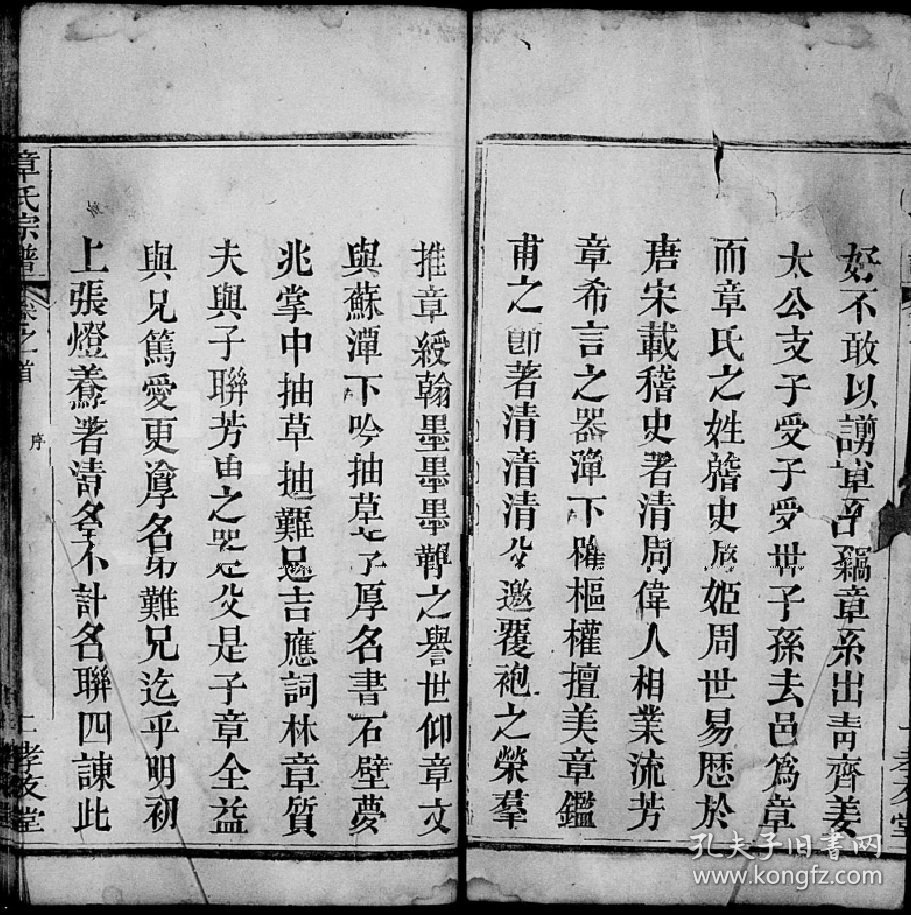 好不敢以謭
章系出青齊姜
太公支子受子受世子孫去邑為章
而章氏之姓
史
姬周世易歷於
唐宋載稽史著清周偉人相業流芳
章希言之器潭下
樞權擅美章鑑
甫之
著清
清
邀覆袍之榮羣
推章綬翰墨墨墨
之譽世仰章文
與蘇潭下吟抽草
子厚名書石壁夢
兆掌中抽草抽難
吉應詞林章質
夫與子聯芳
之
是子章全益
與兄篤愛更
名
難兄迄乎明初
上張燈
著清名不計名聯四諫此
章氏宗譜
卷之首
序
二
孝友堂
孔夫子旧书网
www.kongfz.com